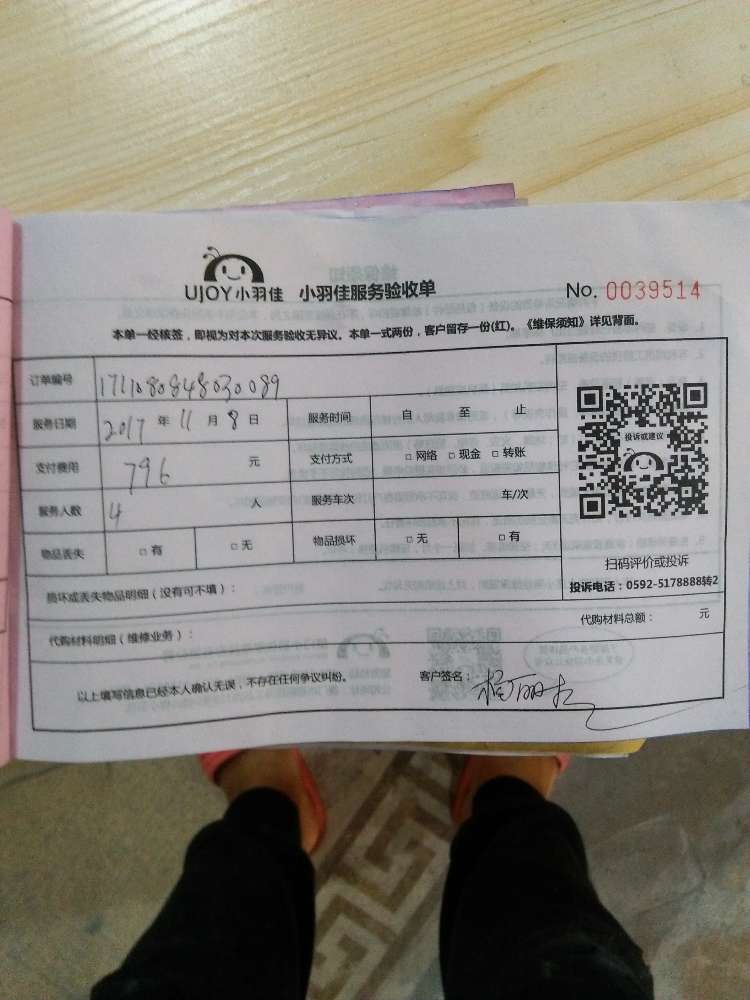 UJOY小羽佳 小羽佳服务验收单 No. 0039514
本单一经核签，即视为对本次服务验收无异议。本单一式两份，客户留存一份(红)。《维保须知》详见背面。
订单编号 1711080848030089
服务日期 2017 年 11 月 8 日 服务时间 自 至 止
支付费用 796 元 支付方式 □ 网络 □ 现金 □ 转账
服务人数 4 人 服务车次 车/次
物品丢失 □ 有 □ 无 物品损坏 □ 无 □ 有
投诉或建议
扫码评价或投诉
投诉电话：0592-5178888转2
损坏或丢失物品明细（没有可不填）：
代购材料明细（维修业务）： 代购材料总额： 元
以上填写信息已经本人确认无误，不存在任何争议纠纷。 客户签名：